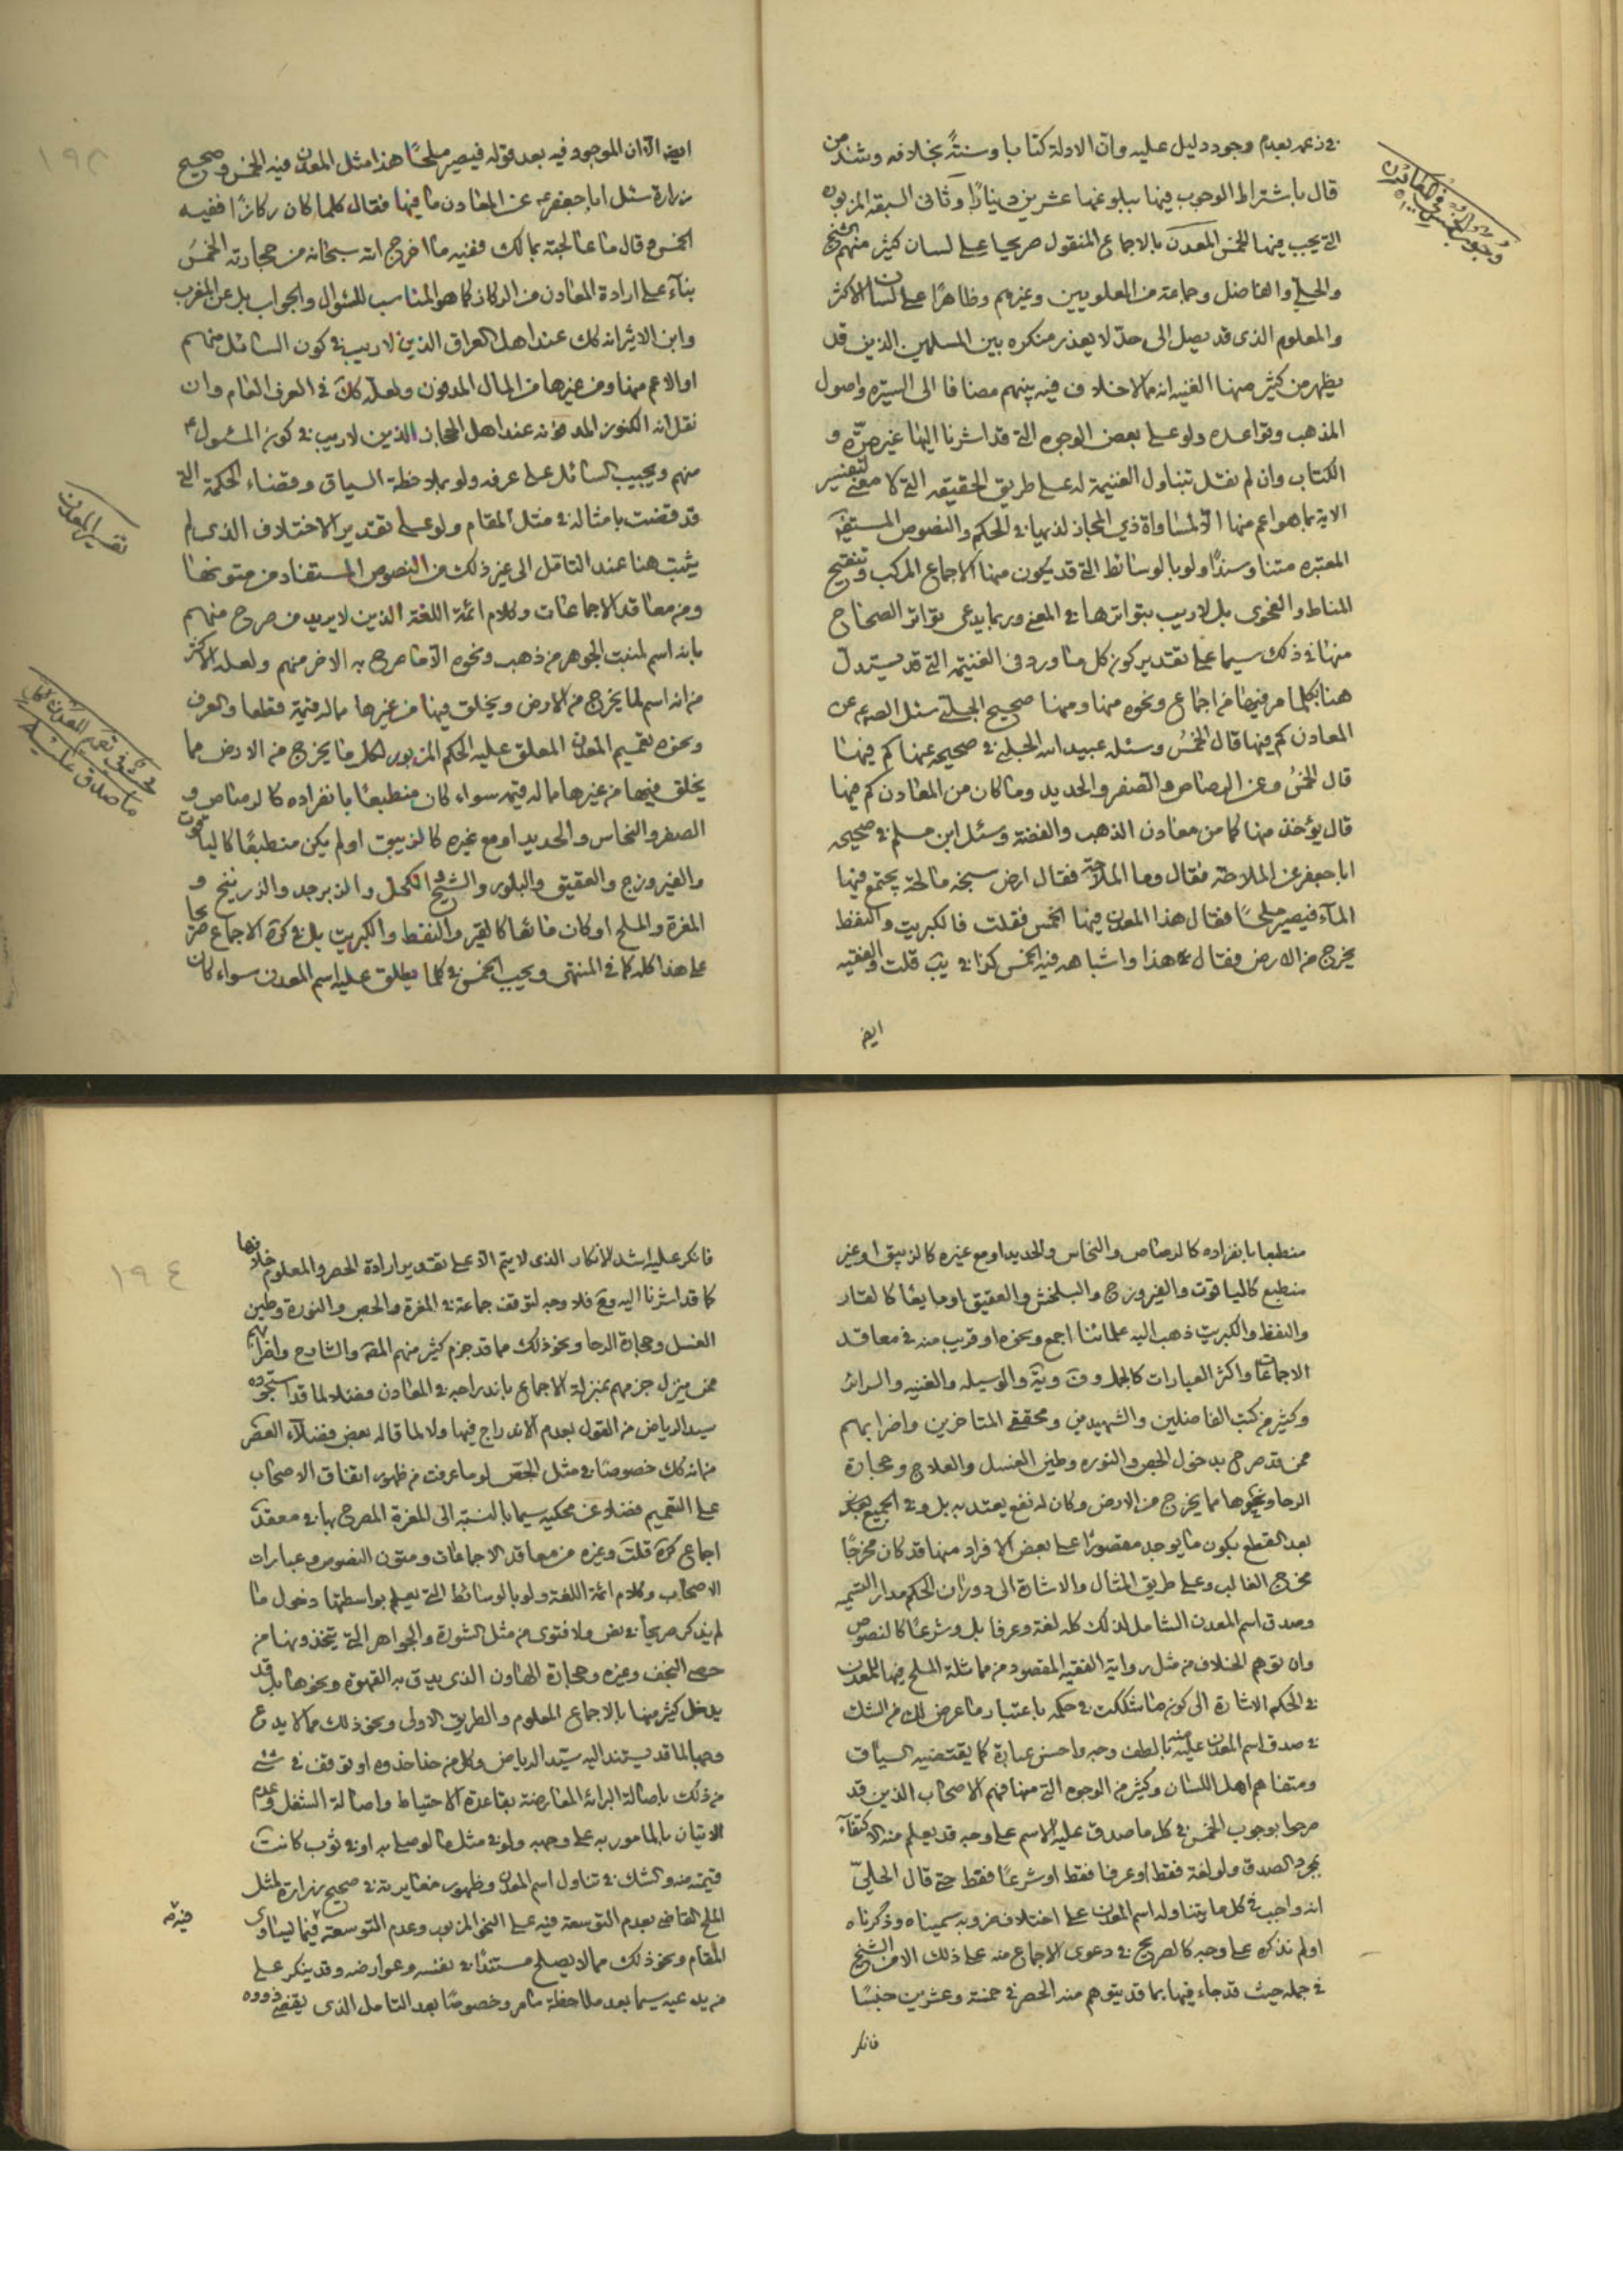 في زعمه بعدم وجود دليل عليه وانّ الادلة كتابا وسنتةً بخلافه وشذ من
قال باشتراط الوجوب فيها ببلوغها عشرين دينارًا وثاني السبقه المزبوره
التي يجب فيها الخمس المعدن بالاجماع المنقول صريحا على لسان كثير منهم الشيخ
والحلي والفاضل وجماعة من العلويين وغيرهم وظاهرًا على لسان الاكثر
والمعلوم الذي قد يصل الى حدّ لا يعذر منكره بين المسلمين الذين قد
يظهر من كثير منها الغنيه انه مما لا خلاف فيه بينهم مضافا الى السيره واصول
المذهب وقواعده ولو على بعض الوجوه التي قد اشرنا اليها غير مرّه و
الكتاب وان لم نقل بتناول الغنيمة له على طريق الحقيقه التي لا معنى لتفسير
الاية بما هو اعم منها الّا لمساواة ذي المجاز لذيها في الحكم والنصوص المستفيضه
المعتبره متنا وسندًا ولو بالوسائط التي قد يكون منها الاجماع المركب وتنقيح
المناط والفحوى بل لا ريب بتواترها في المعنى وربما يدعى تواتر الصحاح
منها في ذلك سيما على تقدير كون كل ما ورد في الغنيمه التي قد يستدل
هنا بكلما مر فيها من اجماع ونحوه منها ومنها صحيح الحلبي سئل الصادق ع عن
المعادن كم فيها قال الخمسُ وسئله عبيد الله الحلبي في صحيحه عنها كم فيها
قال الخمسُ وعن الرصاص والصفر والحديد وما كان من المعادن كم فيها
قال يؤخذ منها كما من معادن الذهب والفضة وسئل ابن مسلم في صحيحه
ابا جعفر عن الملاحة فقال وما الملاحة فقال ارض سبخه مالحة يجتمع فيها
المآء فيصير ملحًا فقال هذا المعدن فيها الخمس فقلت فالكبريت والنفط
يخرج من الارض فقال هذا واشباهه فيه الخمس كذا في يب قلت والفقيه
ايض
وجوب الخمس في المعادن
ايض الّا ان الموجود فيه بعد قوله فيصير ملحًا هذا مثل المعدن فيه الخمس وصحيح
زرارة سئل ابا جعفر ع عن المعادن ما فيها فقال كلما كان ركازًا ففيه
الخمس وقال ما عالجته بمالك ففيه ما اخرج الله سبحانه من حجارته الخمسُ
بنآء على ارادة المعادن من الركاز كما هو المناسب للسؤال والجواب بل عن المغرب
وابن الاثير انه كك عند اهل العراق الذين لا ريب في كون السائل منهم
او الاعم منها ومن غيرها من المال المدفون ولعله كان في العرف العام وان
نقل انه الكنوز المدفونه عند اهل الحجاز الذين لا ريب في كون المسئول ع
منهم ويجيب السائل على عرفه ولو بملاحظة السياق وقضاء الحكمة التي
قد قضت بامثاله في مثل المقام ولو على تقدير الاختلاف الذي لم
يثبت هنا عند التامّل الى غير ذلك من النصوص المستفاد من متونها
ومن معاقد الاجماعات وكلام ائمة اللغة الذين لا يريد من صرح منهم
بانه اسم لمنبت الجوهر من ذهب ونحوه الّا ما صرح به الاخر منهم ولعله الاكثر
من انه اسم لما يخرج من الارض ويخلق فيها من غيرها مما له قيمة فقطعا والعرف
ونحوه تعميم المعدن المعلق عليه الحكم المزبور لكل ما يخرج من الارض مما
يخلق فيها من غيرها مما له قيمه سواء كان منطبعًا بانفراده كالرصاص و
الصفر والنحاس والحديد او مع غيره كالزيبق او لم يكن منطبعًا كالياقوت
والفيروزج والعقيق والبلور والشيح والكحل والزبرجد والزرنيخ و
المغرة والملح او كان مائعًا كالقير والنفط والكبريت بل في كرة الاجماع صريحا
على هذا كله كما في المنتهى ويجب الخمس في كلما يطلق عليه اسم المعدن سواء كان
تفسير المعدن
في تعميم المعدن لكل
ما صدق عليه
منطبعا بانفراده كالرصاص والنحاس والحديد او مع غيره كالزيبق او غير
منطبع كالياقوت والفيروزج والبلخش والعقيق او مايعًا كالقار
والنفط والكبريت ذهب اليه علمائنا اجمع ونحوه او قريب منه في معاقد
الاجماعات واكثر العبارات كالجمل وية والوسيله والغنيه والسرائر
وكثير من كتب الفاضلين والشهيدين ومحققي المتاخرين واضرابهم
ممن قد صرح بدخول الجص والنوره وطين الغسل والعلاج وحجارة
الرحا ونحوها مما يخرج من الارض وكان له نفع يعتد به بل وفي الجميع
بعد القطع بكون ما يوجد مقصورًا على بعض الافراد منها قد كان مخرجًا
مخرج الغالب وعلى طريق المثال والاشارة الى دوران الحكم مدار التسميه
وصدق اسم المعدن الشامل لذلك كله لغة وعرفا بل وشرعًا كالنصوص
وان توهم الخلاف من مثل رواية الفقيه المقصود من مماثلة الملح فيها للمعدن
في الحكم الاشارة الى كونه مما شككت في حكمه باعتبار ما عرض لك من الشك
في صدق اسم المعدن عليه بالطف وجه واحسن عبارة كما يقتضيه السياق
ومتفاهم اهل اللسان وكثير من الوجوه التي منها فهم الاصحاب الذين قد
صرحوا بوجوب الخمس في كل ما صدق عليه الاسم على وجه قد يعلم منه الاكتفآء
بمجرد الصدق ولو لغة فقط او عرفا فقط او شرعًا فقط حتى قال الحلي
انه واجب في كل ما يتناوله اسم المعدن على اختلاف ضروبه سميناه وذكرناه
او لم نذكره على وجه كالصريح في دعوى الاجماع منه على ذلك الا من الشيخ
في جمله حيث قد جاء فيها بما قد يتوهم منه الحصر في خمسة وعشرين جنسًا
فانكر
١٩٤
فانكر عليه اشد الانكار الذي لا يتم الّا على تقدير ارادة الحصر والمعلوم خلافها
كما قد اشرنا اليه ومع فلا وجه لتوقف جماعة في المغرة والجص والنورة وطين
الغسل وحجارة الرحا ونحو ذلك مما قد جزم كثير منهم المقه والشارح واضرابهم
ممن ينزل جزمهم بمنزلة الاجماع باندراجه في المعادن فضلا لما قد استجوده
سيد الرياض من القول بعدم الاندراج فيها ولا لما قاله بعض فضلآء العصر
من انه كك خصوصًا في مثل الجص لو ما عرفت من ظهور اتفاق الاصحاب
على التعميم فضلا عن محكيه سيما بالنسبة الى المغرة المصرح بها في معقد
اجماع كرة قلت وغيره من معاقد الاجماعات ومتون النصوص وعبارات
الاصحاب وكلام ائمة اللغة ولو بالوسائط التي يعلم بواسطتها دخول ما
لم يذكر صريحًا في نص ولا فتوى من مثل الشورة والجواهر التي يتخذونها من
حصى النجف وغيره وحجارة الهاون الذي يدق به القهوة ونحوها بل قد
يدخل كثير منها بالاجماع المعلوم والطريق الاولى ونحو ذلك مما لا يدع
وجها لما قد يستند اليه سيد الرياض وكل من حذا حذوه او توقف في شئ
من ذلك باصالة البرائة المعارضة بقاعدة الاحتياط واصالة الشغل وعدم
الاتيان بالمامور به على وجهه ولو في مثل ما لو صلى به او في ثوب كانت
قيمته منه والشك في تناول اسم المعدن وظهور مغايرته في صحيح زرارة لمثل
الملح القاضي بعدم التوسعة فيه على النحو المزبور وعدم التوسعة فيما يساوي
المقام ونحو ذلك مما لا يصلح مستندًا في نفسه وعوارضه وقد ينكر على
مريد عيه سيما بعد ملاحظة ما مر وخصوصًا بعد التامل الذي يقضي